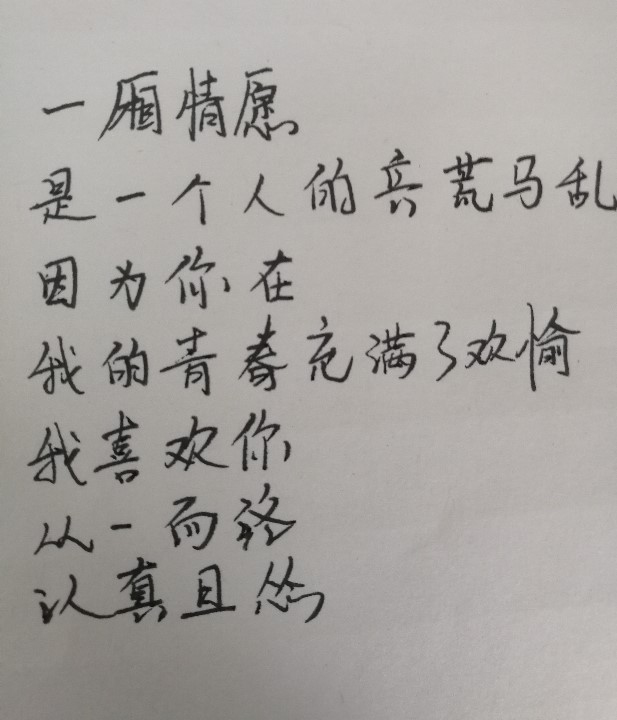 一厢情愿
是一个人的兵荒马乱
因为你在
我的青春充满了欢愉
我喜欢你
从一而终
认真且怂